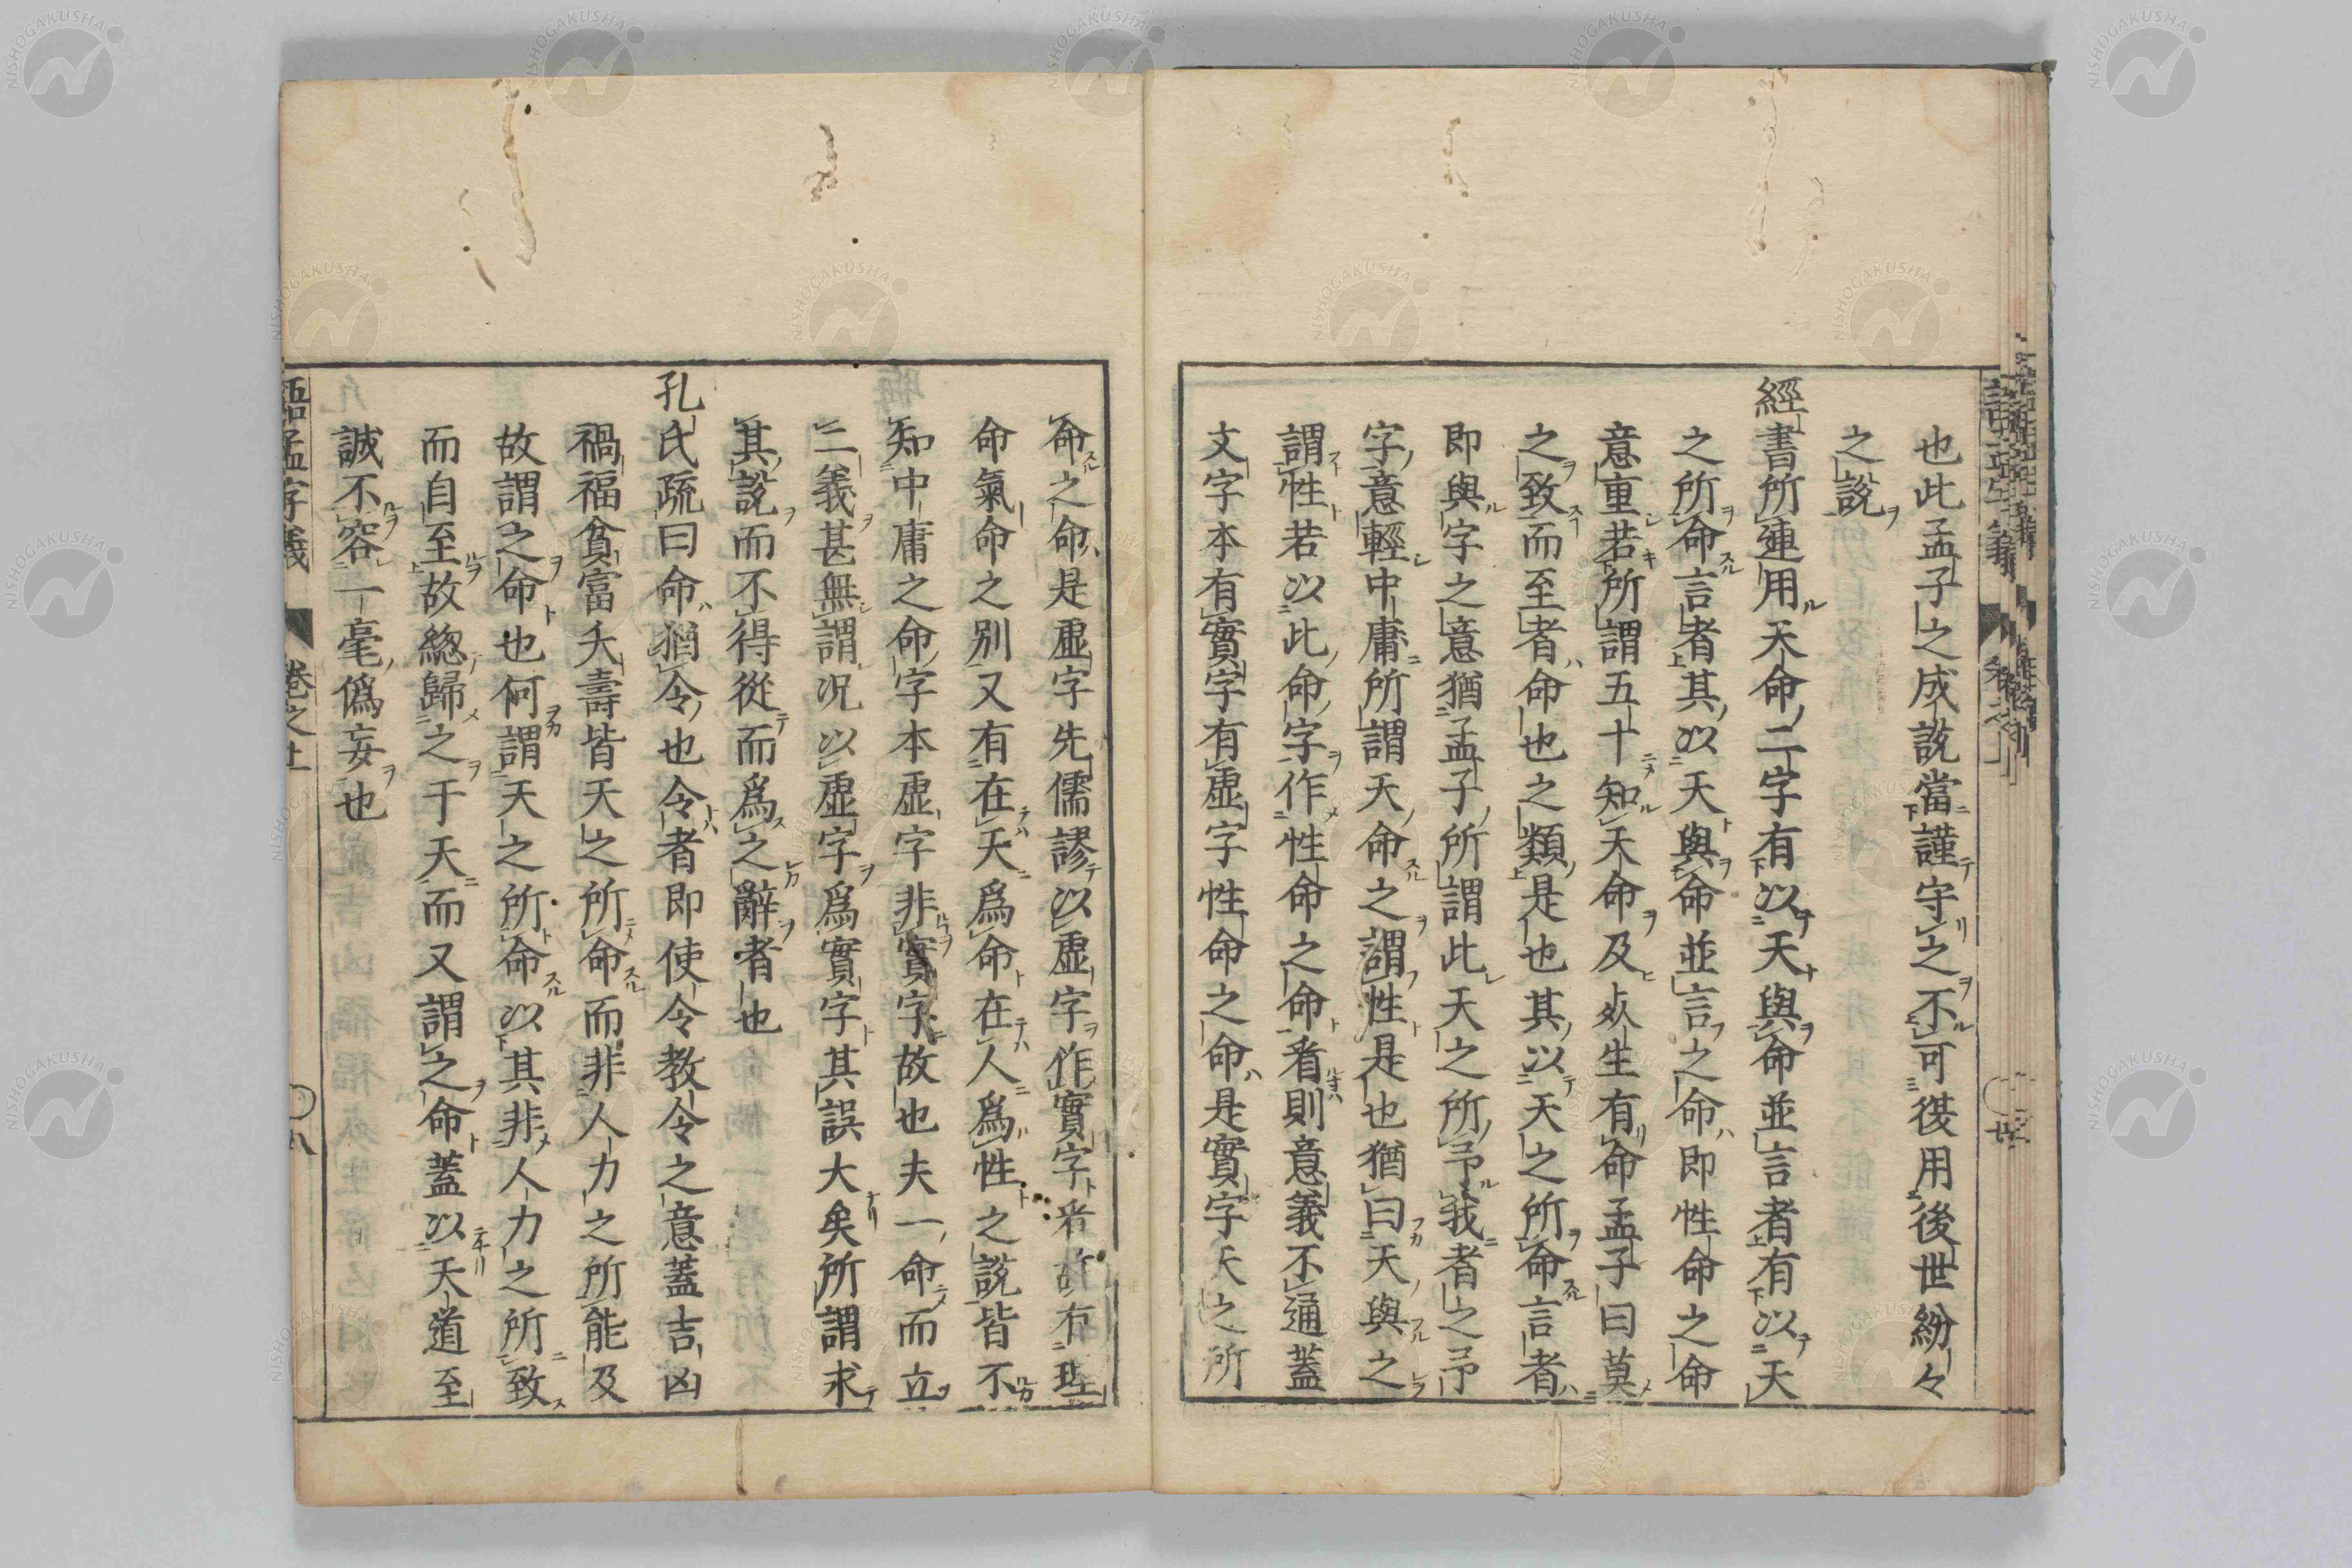 也此孟子之成說當謹守之不可徙用後世紛々
之說
經書所連用天命二字有以天與命並言者有以天
之所命言者其以天與命並言之命即性命之命
意重若所謂五十知天命及死生有命孟子曰莫
之致而至者命也之類是也其以天之所命言者
即與字之意猶孟子所謂此天之所予我者之予
字意輕中庸所謂天命之謂性是也猶曰天與之
謂性若以此命字作性命之命看則意義不通蓋
文字本有實字有虛字性命之命是實字天之所
命之命是虛字先儒謬以虛字作實字看故有理
命氣命之別又有在天爲命在人爲性之說皆不
知中庸之命字本虛字非實字故也夫一命而立
二義甚無謂況以虛字爲實字其誤大矣所謂求
其說而不得從而爲之辭者也
孔氏疏曰命猶令也令者即使令教令之意蓋吉凶
禍福貧富夭壽皆天之所命而非人力之所能及
故謂之命也何謂天之所命以其非人力之所致
而自至故總歸之于天而又謂之命蓋以天道至
誠不容一毫僞妄也
語孟字義 卷之上 八